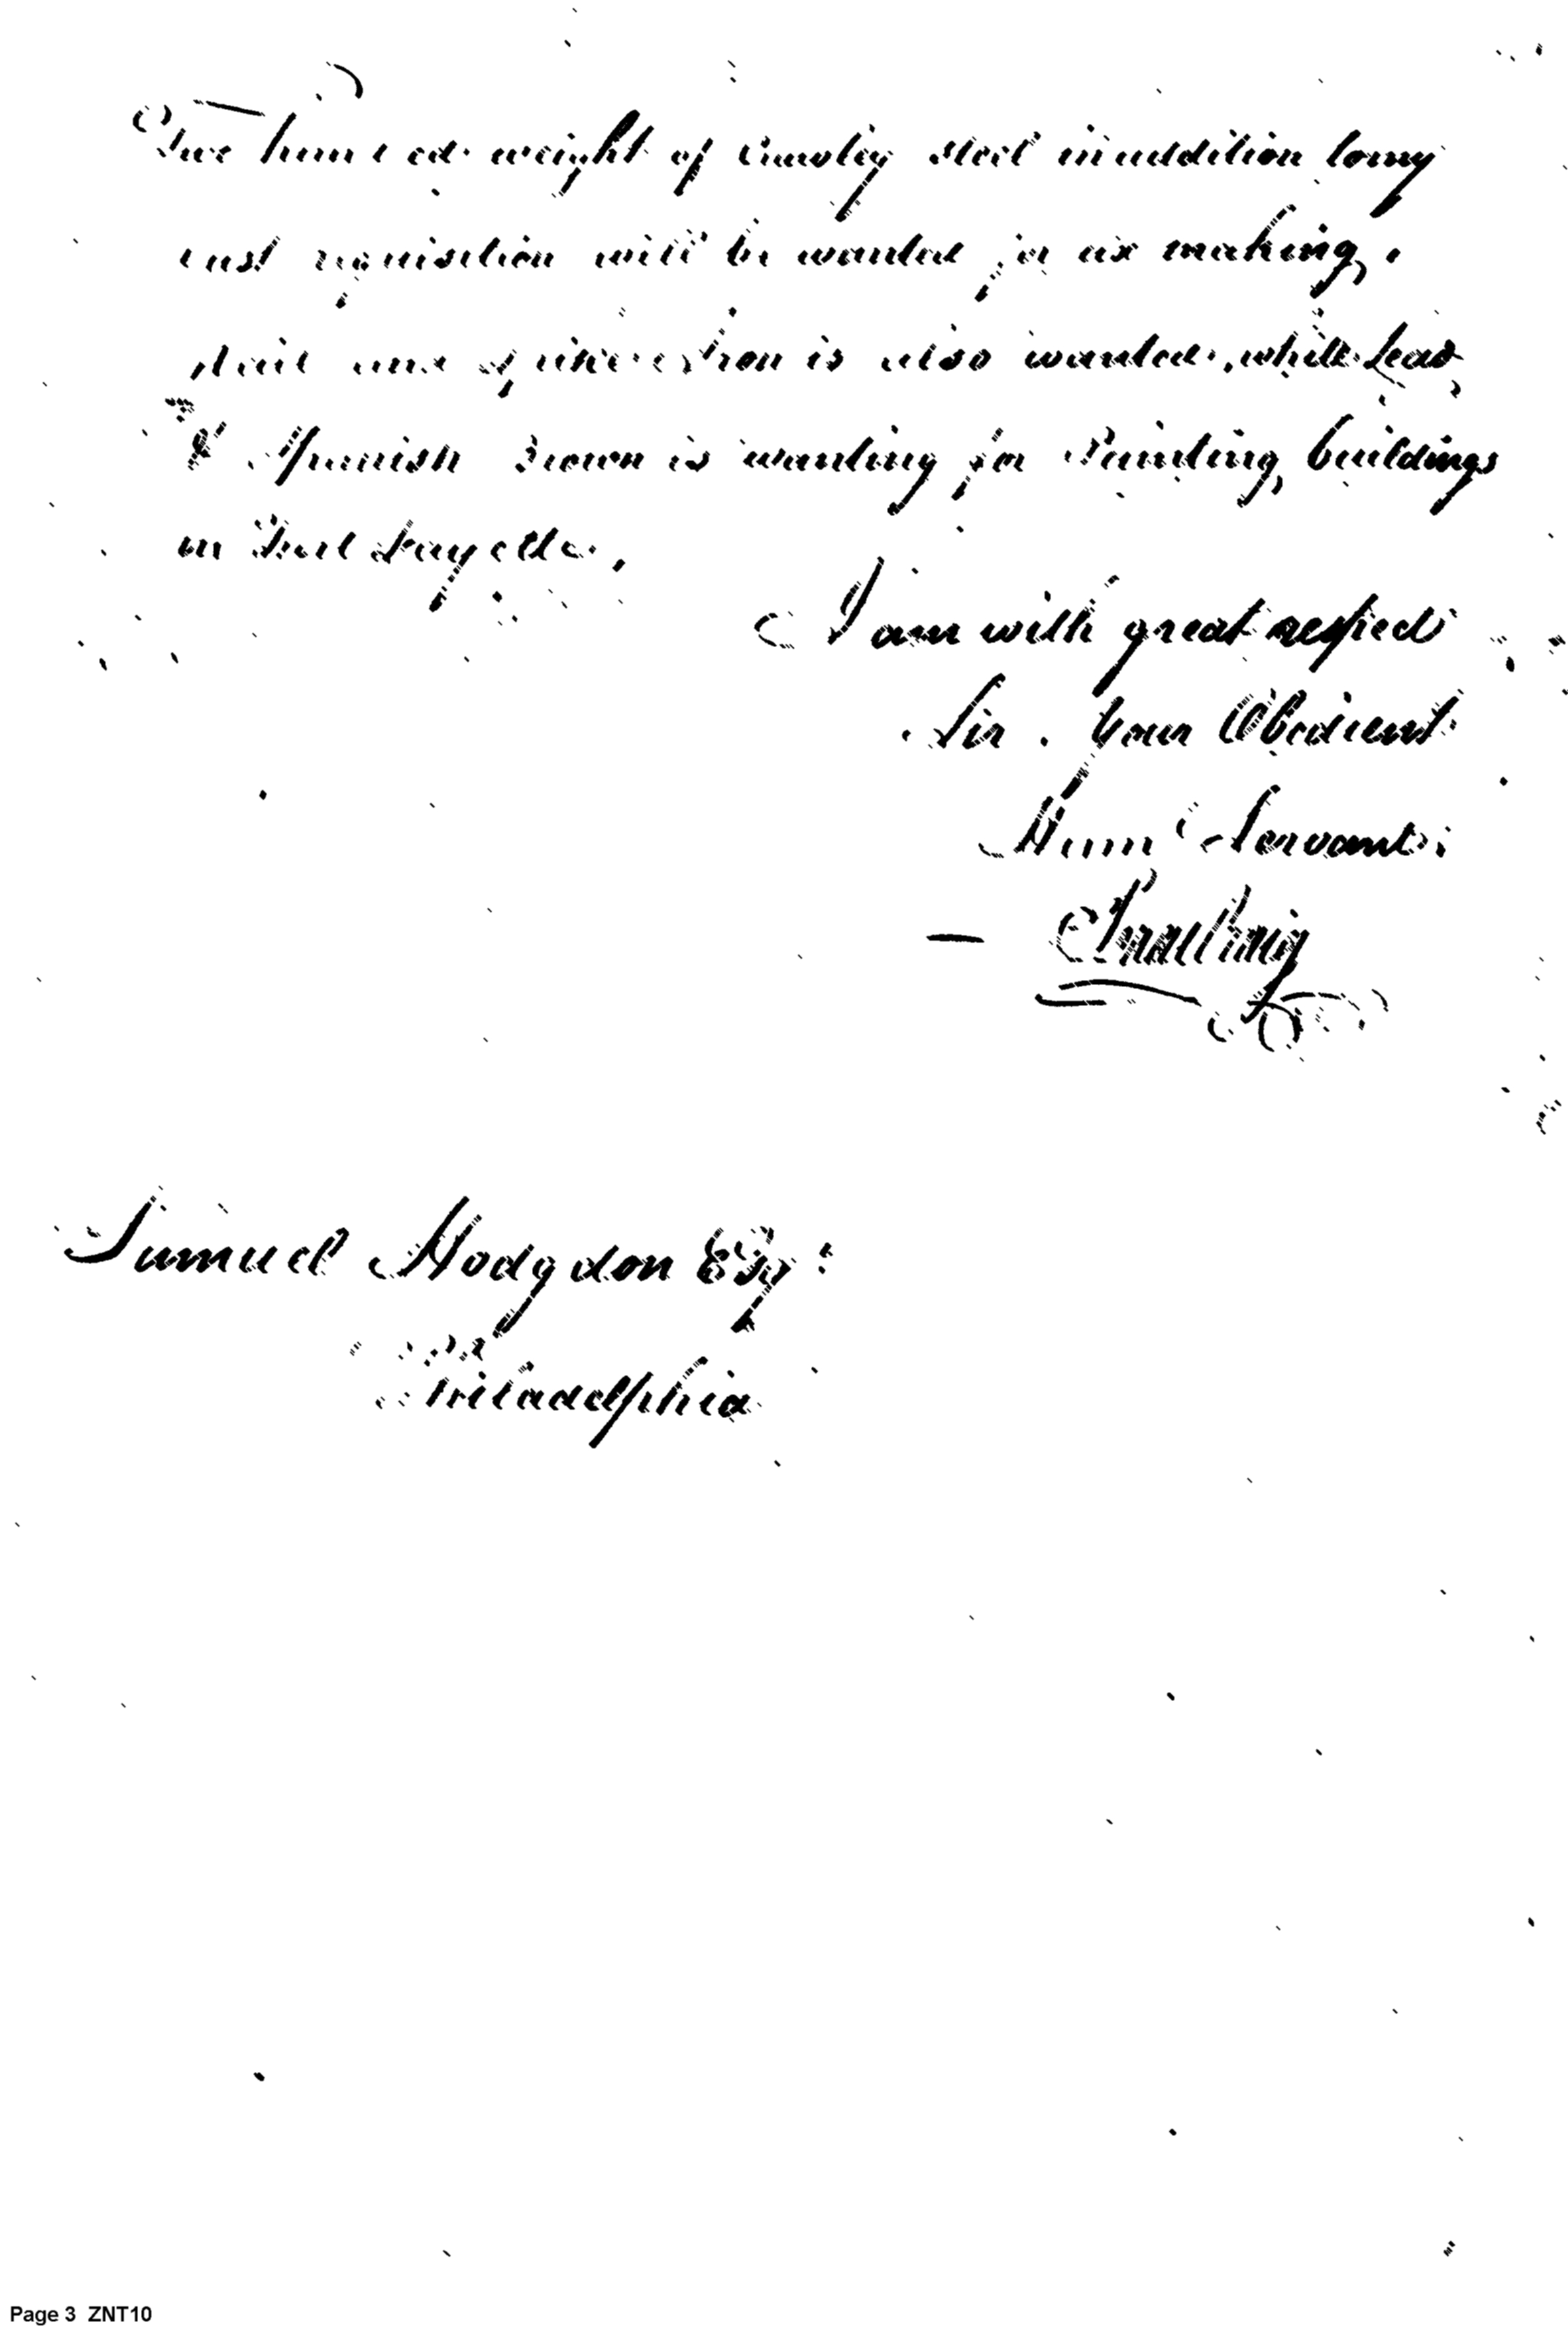 Two hundred weight of Crowley steel in addition to my
last requisition will be wanted for ax making,
Nail and spike Iron is also wanted, white Lead
& Spanish Brown is wanting for Painting buildings
in Fort Fayette,
I am with great respect
Sir. Your Obedient
Hum Servant
Isaac Craig
Samuel Hodgdon Esqr
Philadelphia
Page 3 ZNT10